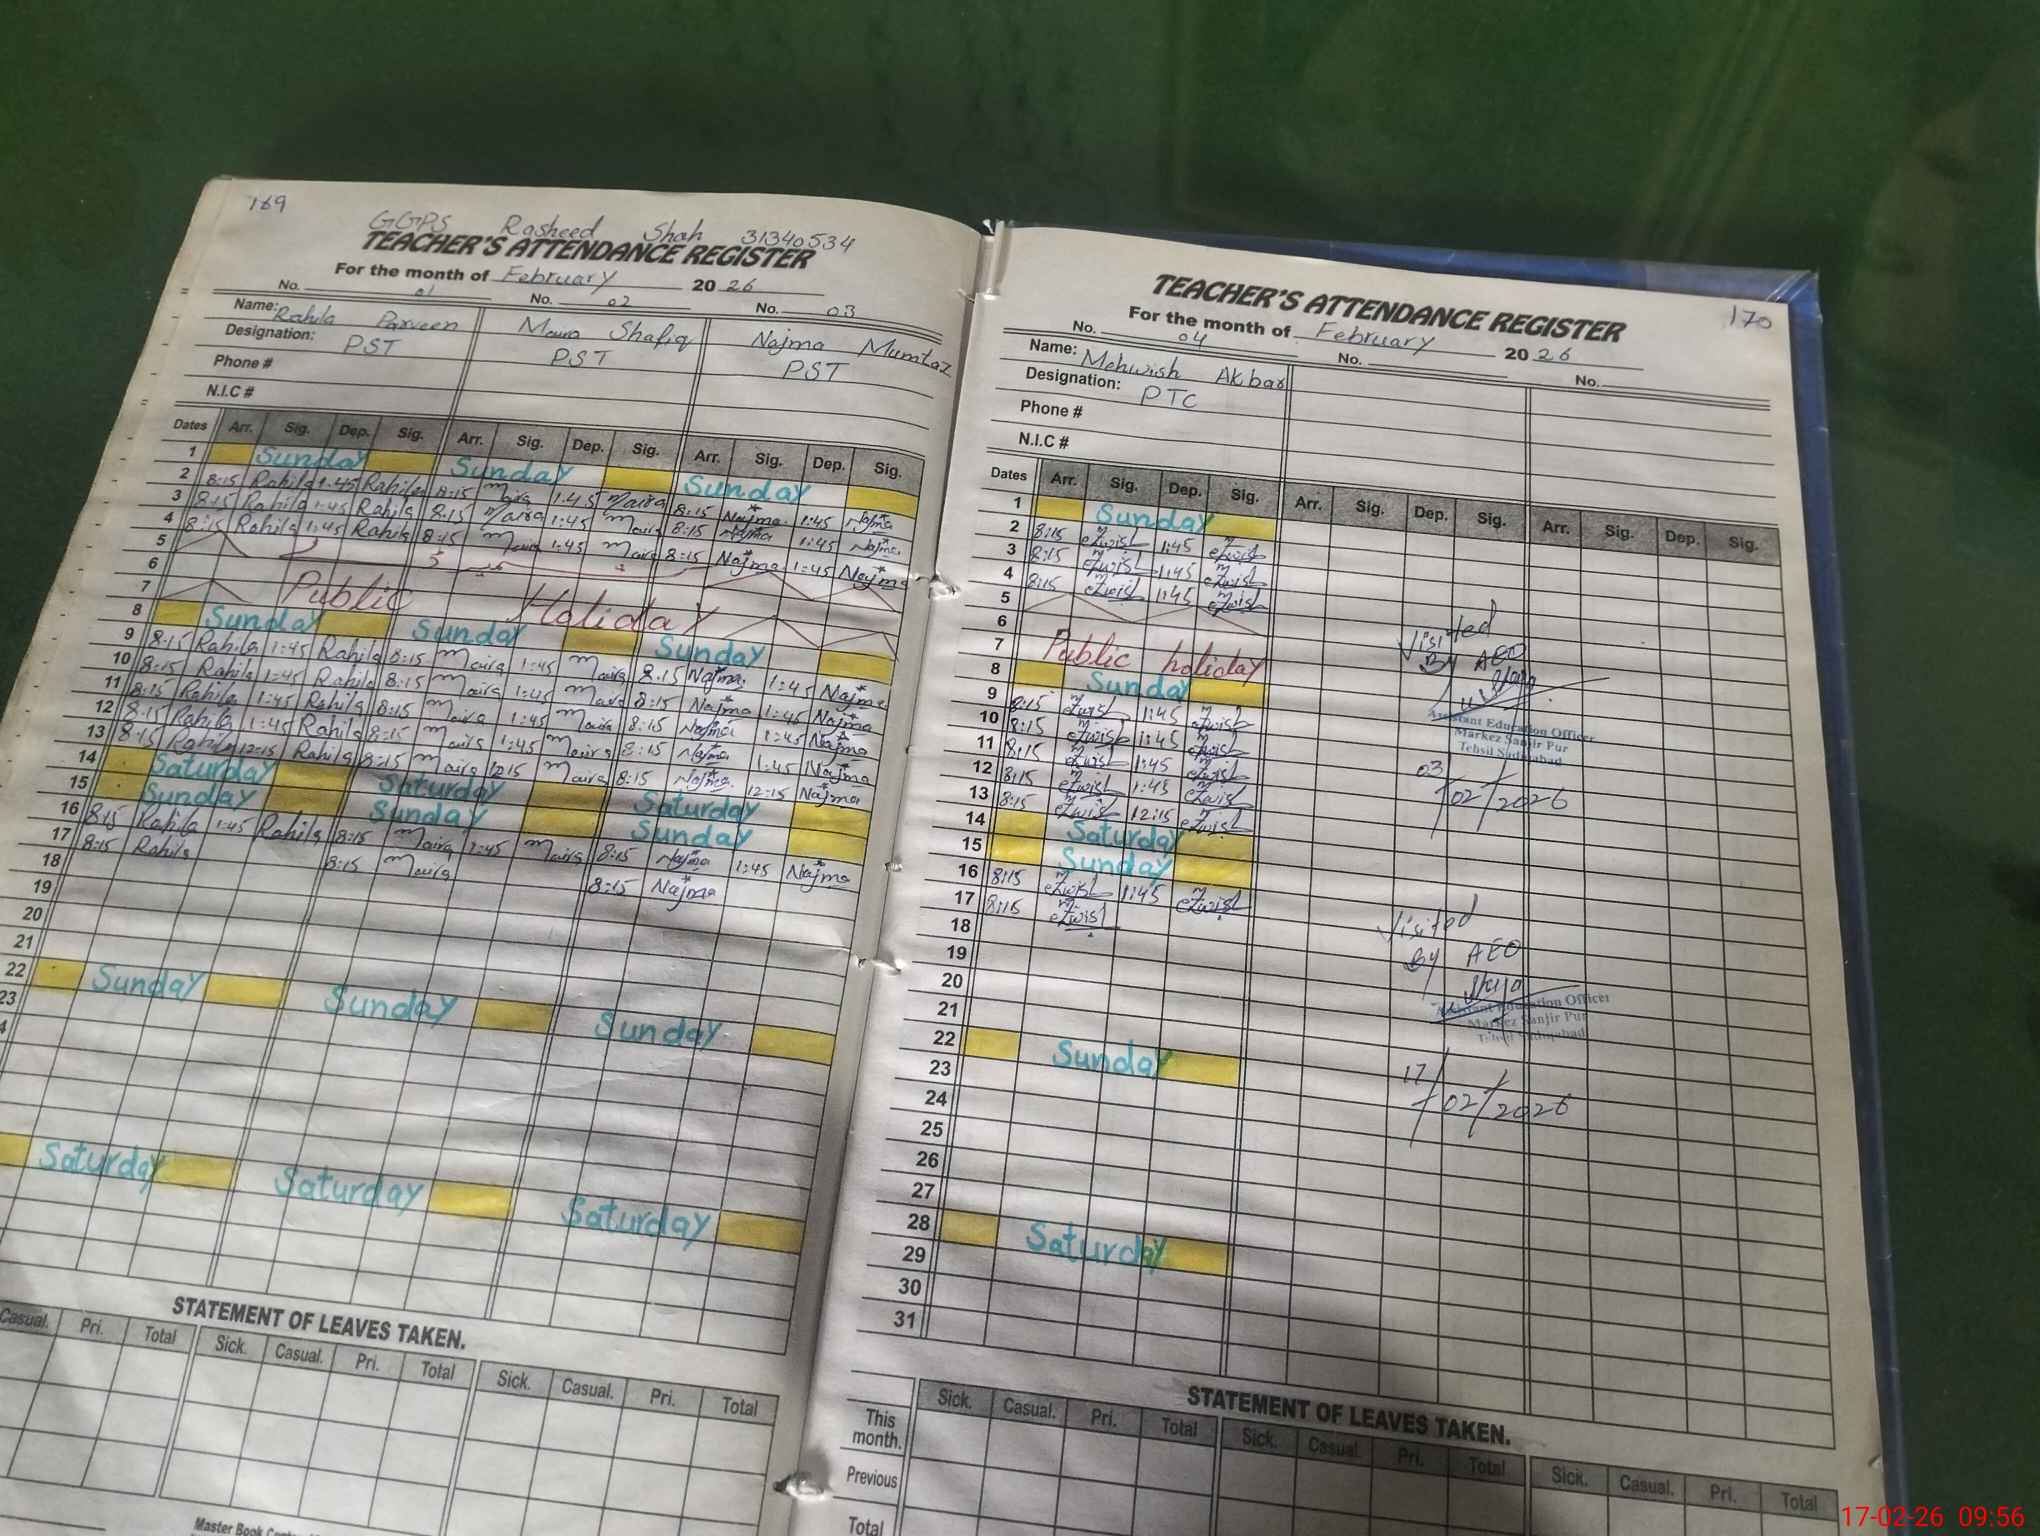 169
GGPS Rasheed Shah 31340534
TEACHER'S ATTENDANCE REGISTER
For the month of February 20 26
No. 01 No. 02 No. 03
Name: Rahila Parveen Maira Shafiq Najma Mumtaz
Designation: PST PST PST
Phone #
N.I.C #
Dates Arr. Sig. Dep. Sig. Arr. Sig. Dep. Sig. Arr. Sig. Dep. Sig.
1 Sunday Sunday Sunday
2 8:15 Rahila 1:45 Rahila 8:15 Maira 1:45 Maira 8:15 Najma 1:45 Najma
3 8:15 Rahila 1:45 Rahila 8:15 Maira 1:45 Maira 8:15 Najma 1:45 Najma
4 8:15 Rahila 1:45 Rahila 8:15 Maira 1:45 Maira 8:15 Najma 1:45 Najma
5
6
7 Public Holiday
8 Sunday Sunday Sunday
9 8:15 Rahila 1:45 Rahila 8:15 Maira 1:45 Maira 8:15 Najma 1:45 Najma
10 8:15 Rahila 1:45 Rahila 8:15 Maira 1:45 Maira 8:15 Najma 1:45 Najma
11 8:15 Rahila 1:45 Rahila 8:15 Maira 1:45 Maira 8:15 Najma 1:45 Najma
12 8:15 Rahila 1:45 Rahila 8:15 Maira 1:45 Maira 8:15 Najma 1:45 Najma
13 8:15 Rahila 12:15 Rahila 8:15 Maira 12:15 Maira 8:15 Najma 12:15 Najma
14 Saturday Saturday Saturday
15 Sunday Sunday Sunday
16 8:15 Rahila 1:45 Rahila 8:15 Maira 1:45 Maira 8:15 Najma 1:45 Najma
17 8:15 Rahila 8:15 Maira 8:15 Najma
18
19
20
21
22 Sunday Sunday Sunday
23
4
Saturday Saturday Saturday
STATEMENT OF LEAVES TAKEN.
Casual. Pri. Total Sick. Casual. Pri. Total Sick. Casual. Pri. Total
Master Book
170
TEACHER'S ATTENDANCE REGISTER
For the month of February 20 26
No. 04 No. No.
Name: Mehwish Akbar
Designation: PTC
Phone #
N.I.C #
Dates Arr. Sig. Dep. Sig. Arr. Sig. Dep. Sig. Arr. Sig. Dep. Sig.
1 Sunday
2 8:15 1:45
3 8:15 1:45
4 8:15 1:45
5
6
7 Public holiday
8 Sunday
9 8:15 1:45
10 8:15 1:45
11 8:15 1:45
12 8:15 1:45
13 8:15 12:15
14 Saturday
15 Sunday
16 8:15 1:45
17 8:15
18
19
20
21
22 Sunday
23
24
25
26
27
28 Saturday
29
30
31
Visited
By AEO
Assistant Education Officer
Markez Sanjir Pur
Tehsil Sadiqabad
03/02/2026
Visited
By AEO
Assistant Education Officer
Markez Sanjir Pur
Tehsil Sadiqabad
17/02/2026
STATEMENT OF LEAVES TAKEN.
Sick. Casual. Pri. Total Sick. Casual. Pri. Total Sick. Casual. Pri. Total
This month.
Previous
Total
17-02-26 09:56